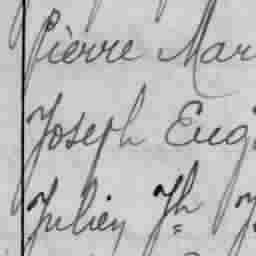 Pierre Mar
Joseph Eug
Julien Jh J